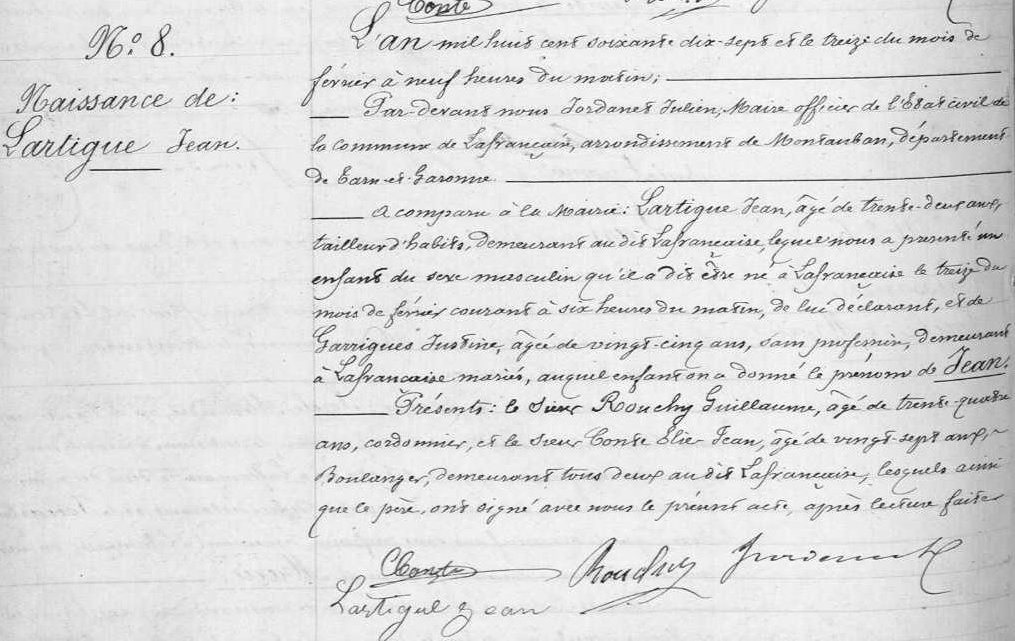 Conte
N.o 8.
Naissance de:
Lartigue Jean.
L'an mil huit cent soixante dix-sept et le treize du mois de
février à neuf heures du matin;
Par-devant nous Jordanet Julien, Maire officier de l'Etat civil de
la commune de Lafrançaise, arrondissement de Montauban, département
de Tarn-et-Garonne.
A comparu à la Mairie: Lartigue Jean, âgé de trente-deux ans,
tailleur d'habits, demeurant au dit Lafrancaise, lequel nous a presenté un
enfant du sexe masculin qu'il a dit être né à Lafrançaise le treize du
mois de février courant à six heures du matin, de lui déclarant, et de
Garrigues Justine, âgée de vingt-cinq ans, sans profession, demeurant
à Lafrancaise mariés, auquel enfant on a donné le prénom de Jean.
Présents: le sieur Rouchy Guillaume, âgé de trente-quatre
ans, cordonnier, et le sieur Conte Elie Jean, âgé de vingt-sept ans,
Boulanger, demeurant tous deux au dit Lafrancaise, lesquels ainsi
que le père, ont signé avec nous le présent acte, après lecture faite.
Conte Rouchy Jordanet
Lartigue Jean